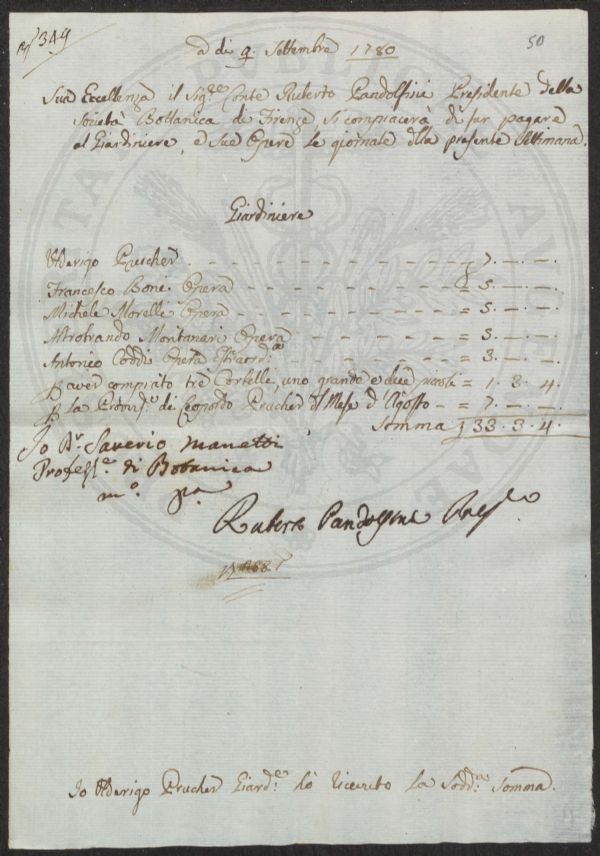 N° 349
50
a di 9. Settembre 1780
Sua Eccellenza il Sig.re Conte Ruberto Pandolfini Presidente della
Società Bottanica di Firenze si compiacerà di far pagare
al Giardiniere, e sue Opere le giornate della presente Settimana.
Giardiniere
Ulderigo Prucher - - - = 7. — . —.
Francesco Boni Opera - - - = 5. — . —.
Michele Morelli Opera - - - = 5. — . —.
Attrotrando Montanari Opera - - - = 5. — . —.
Antonio Coddi Opera - - - = 3. — . —.
P aver comprato trè Cortelle, uno grande e due piccoli = 1. 3. 4.
P la Provvis.e di Leopoldo Prucher d Mese d'Agosto - = 7. — . —
Somma 33. 3. 4.
Io D.r Saverio Manetti
Profess.e di Botanica
m.o p.a
Ruberto Pandolfini Pres.e
Io Ulderigo Prucher Giard.e hò ricevuto la Sodd.a Somma.